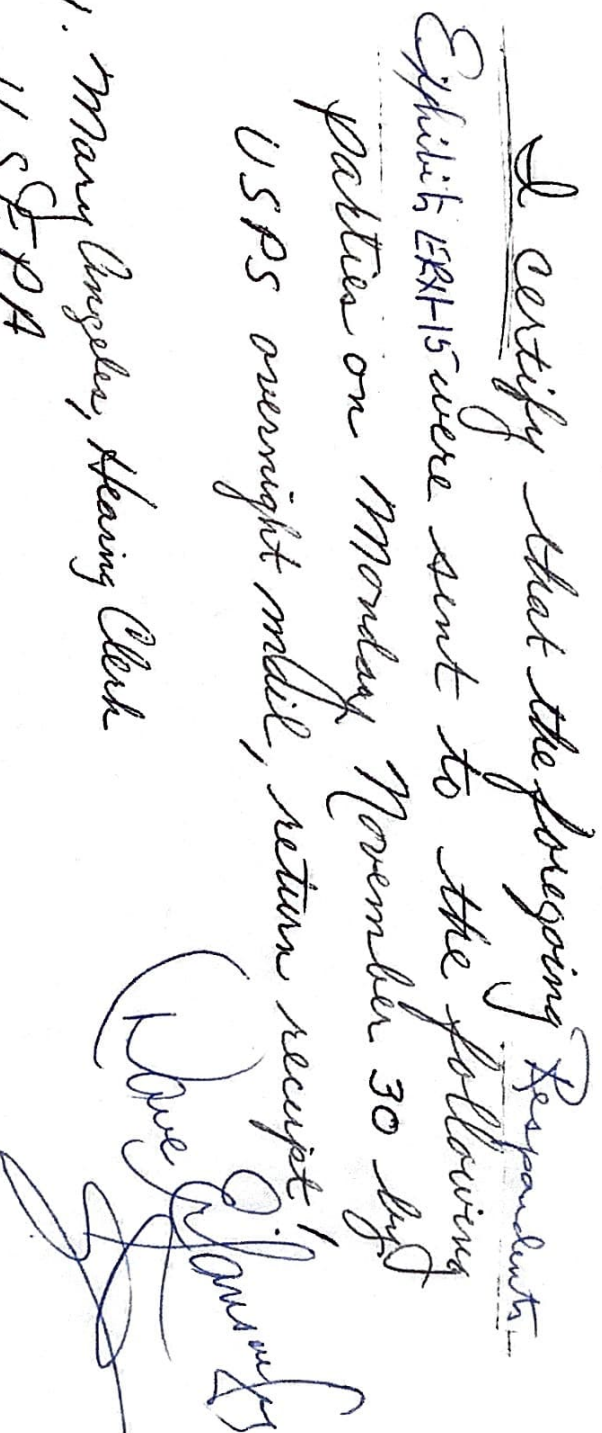 I certify that the foregoing Respondents
Exhibits were sent to the following
parties on Monday November 30 by
USPS overnight mail, return receipt
1. Mary Angeles, Hearing Clerk
USEPA
Dave